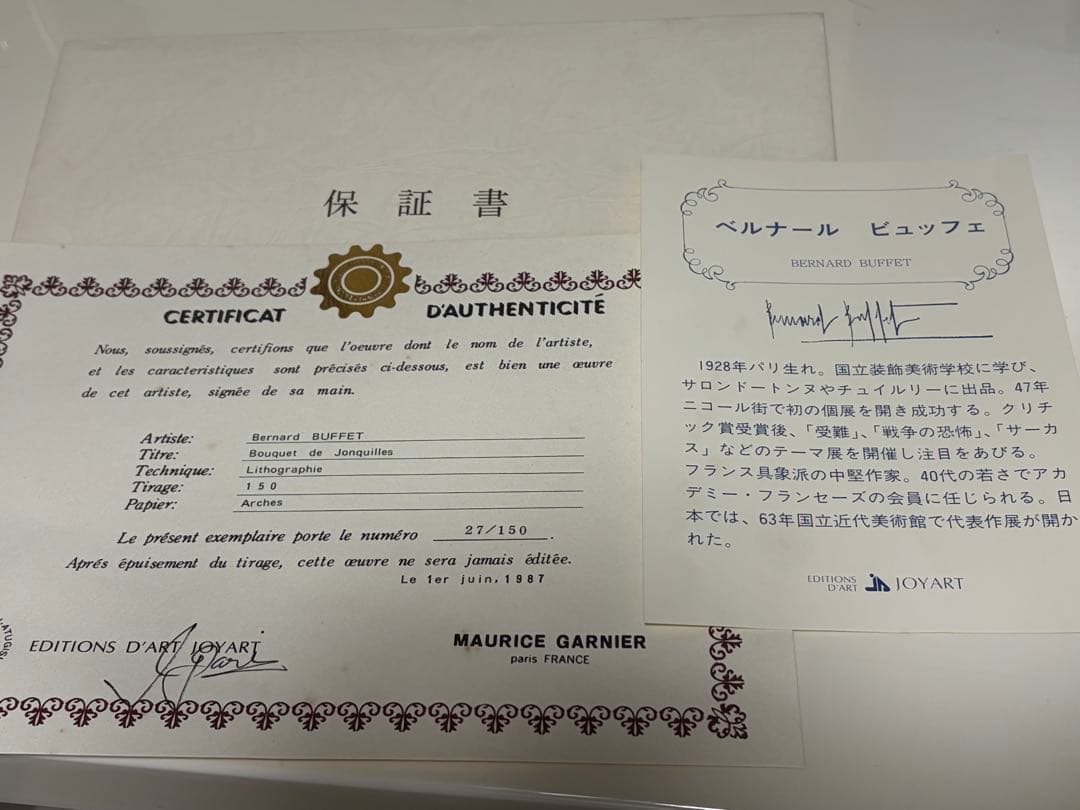 保証書
CERTIFICAT D'AUTHENTICITÉ
Nous, soussignés, certifions que l'oeuvre dont le nom de l'artiste,
et les caracteristiques sont précisés ci-dessous, est bien une œuvre
de cet artiste, signée de sa main.
Artiste: Bernard BUFFET
Titre: Bouquet de Jonquilles
Technique: Lithographie
Tirage: 150
Papier: Arches
Le présent exemplaire porte le numéro 27/150.
Aprés épuisement du tirage, cette œuvre ne sera jamais éditée.
Le 1er juin, 1987
EDITIONS D'ART JOYART
MAURICE GARNIER
paris FRANCE
ベルナール ビュッフェ
BERNARD BUFFET
Bernard Buffet
1928年パリ生れ。国立装飾美術学校に学び、
サロンドートンヌやチュイルリーに出品。47年
ニコール街で初の個展を開き成功する。クリチ
ック賞受賞後、「受難」、「戦争の恐怖」、「サーカ
ス」などのテーマ展を開催し注目をあびる。
フランス具象派の中堅作家。40代の若さでアカ
デミー・フランセーズの会員に任じられる。日
本では、63年国立近代美術館で代表作展が開か
れた。
EDITIONS D'ART JOYART